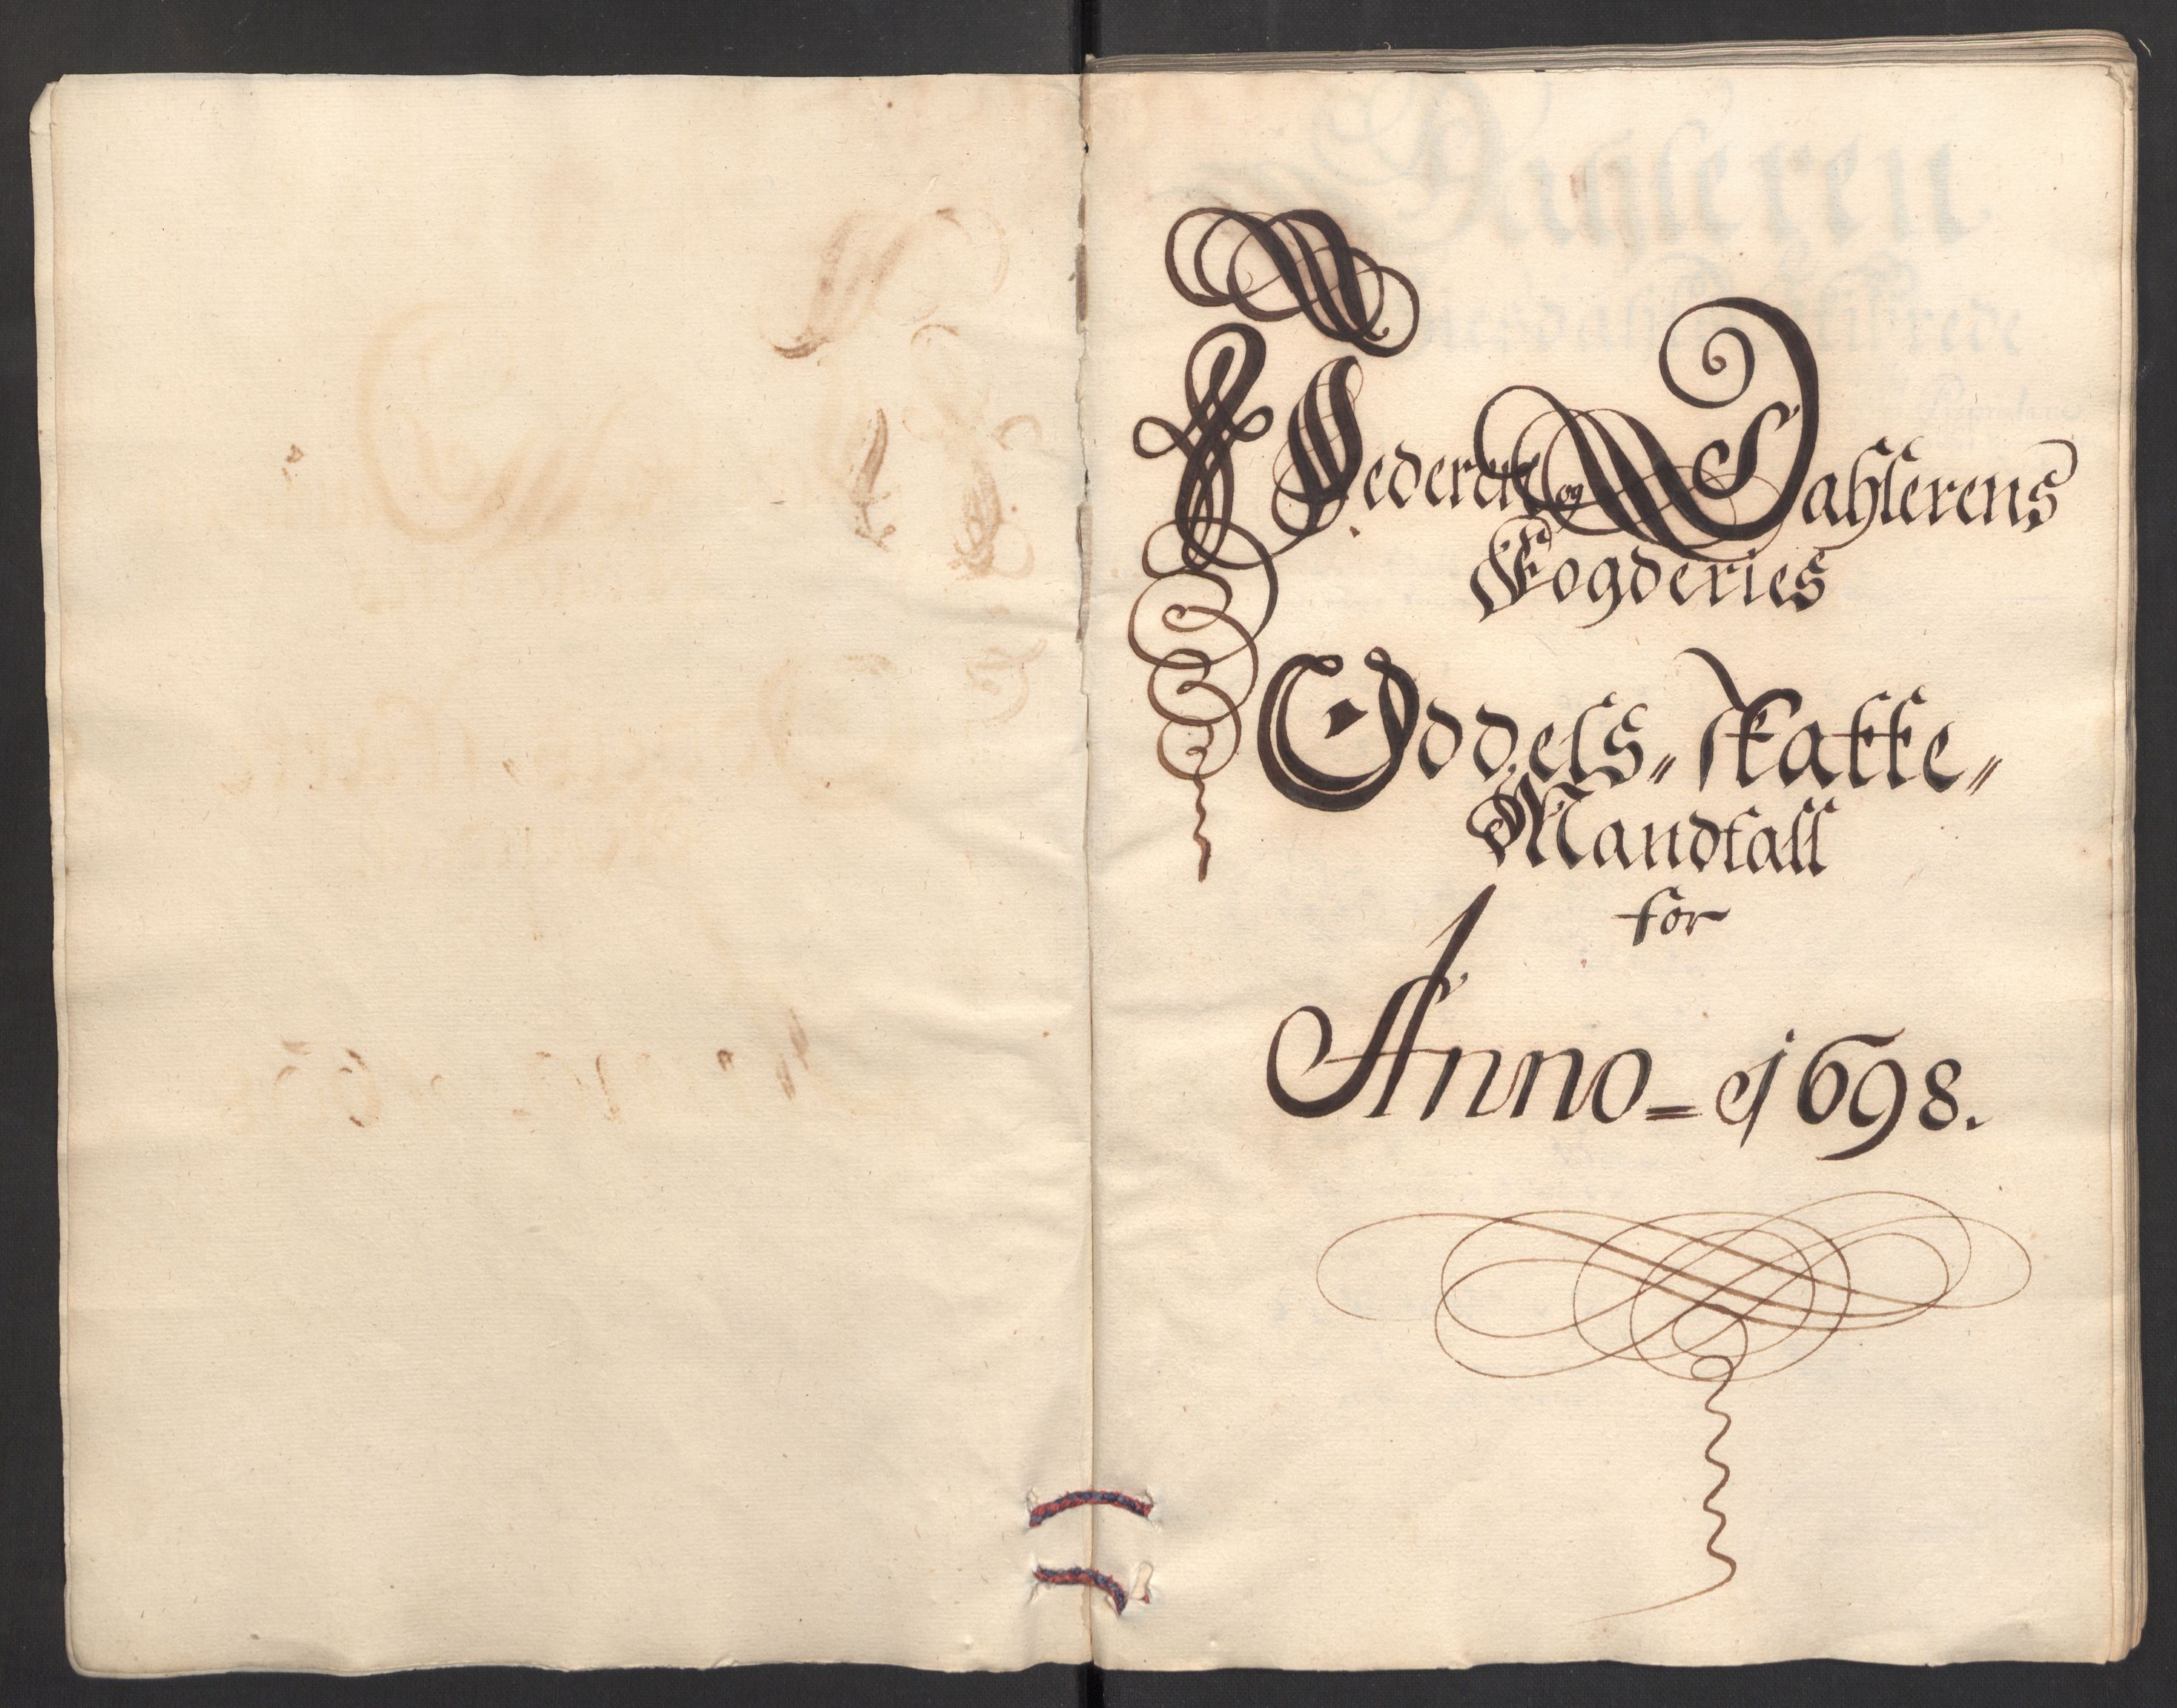 Jederen og Dahlerens
Fogderies
Oddels„ skatte„
Mandtall
for
Anno = 1698.